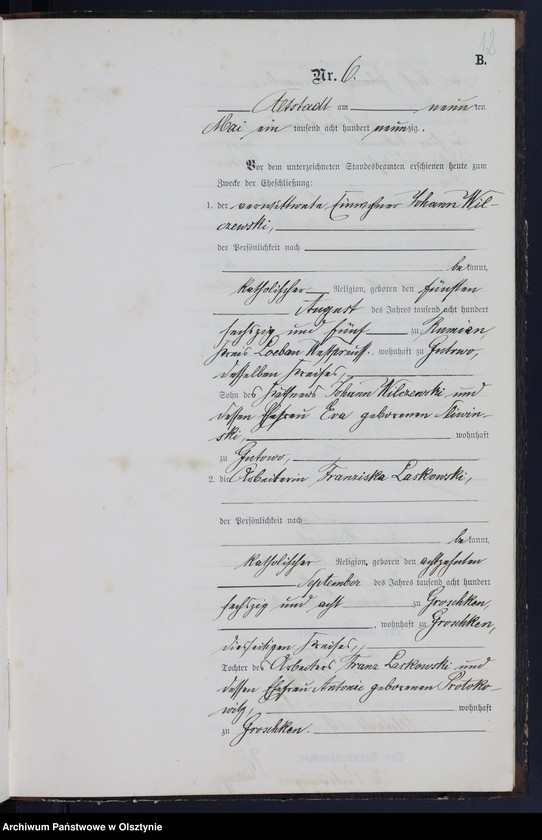 12
B.
Nr. 6.
Altstadt am neun ten
Mai ein tausend acht hundert neunzig.
Vor dem unterzeichneten Standesbeamten erschienen heute zum
Zwecke der Eheschließung:
1. der verwittwete Einwohner Johann Wil-
czewski,
der Persönlichkeit nach
be kannt,
katholischer Religion, geboren den fünften
August des Jahres tausend acht hundert
sechszig und fünf zu Rumian,
Kreis Loebau Westpreuss., wohnhaft zu Gutowo,
desselben Kreises,
Sohn des Käthners Johann Wilczewski und
dessen Ehefrau Eva geborenen Niwin-
ski, wohnhaft
zu Gutowo,
2. die Arbeiterin Franziska Laskowski,
der Persönlichkeit nach
be kannt,
katholischer Religion, geboren den achtzehnten
September des Jahres tausend acht hundert
sechszig und acht zu Groschken,
, wohnhaft zu Groschken,
diesseitigen Kreises,
Tochter des Arbeiters Franz Laskowski und
dessen Ehefrau Antonie geborenen Protoko-
witz, wohnhaft
zu Groschken.
Archiwum Państwowe w Olsztynie